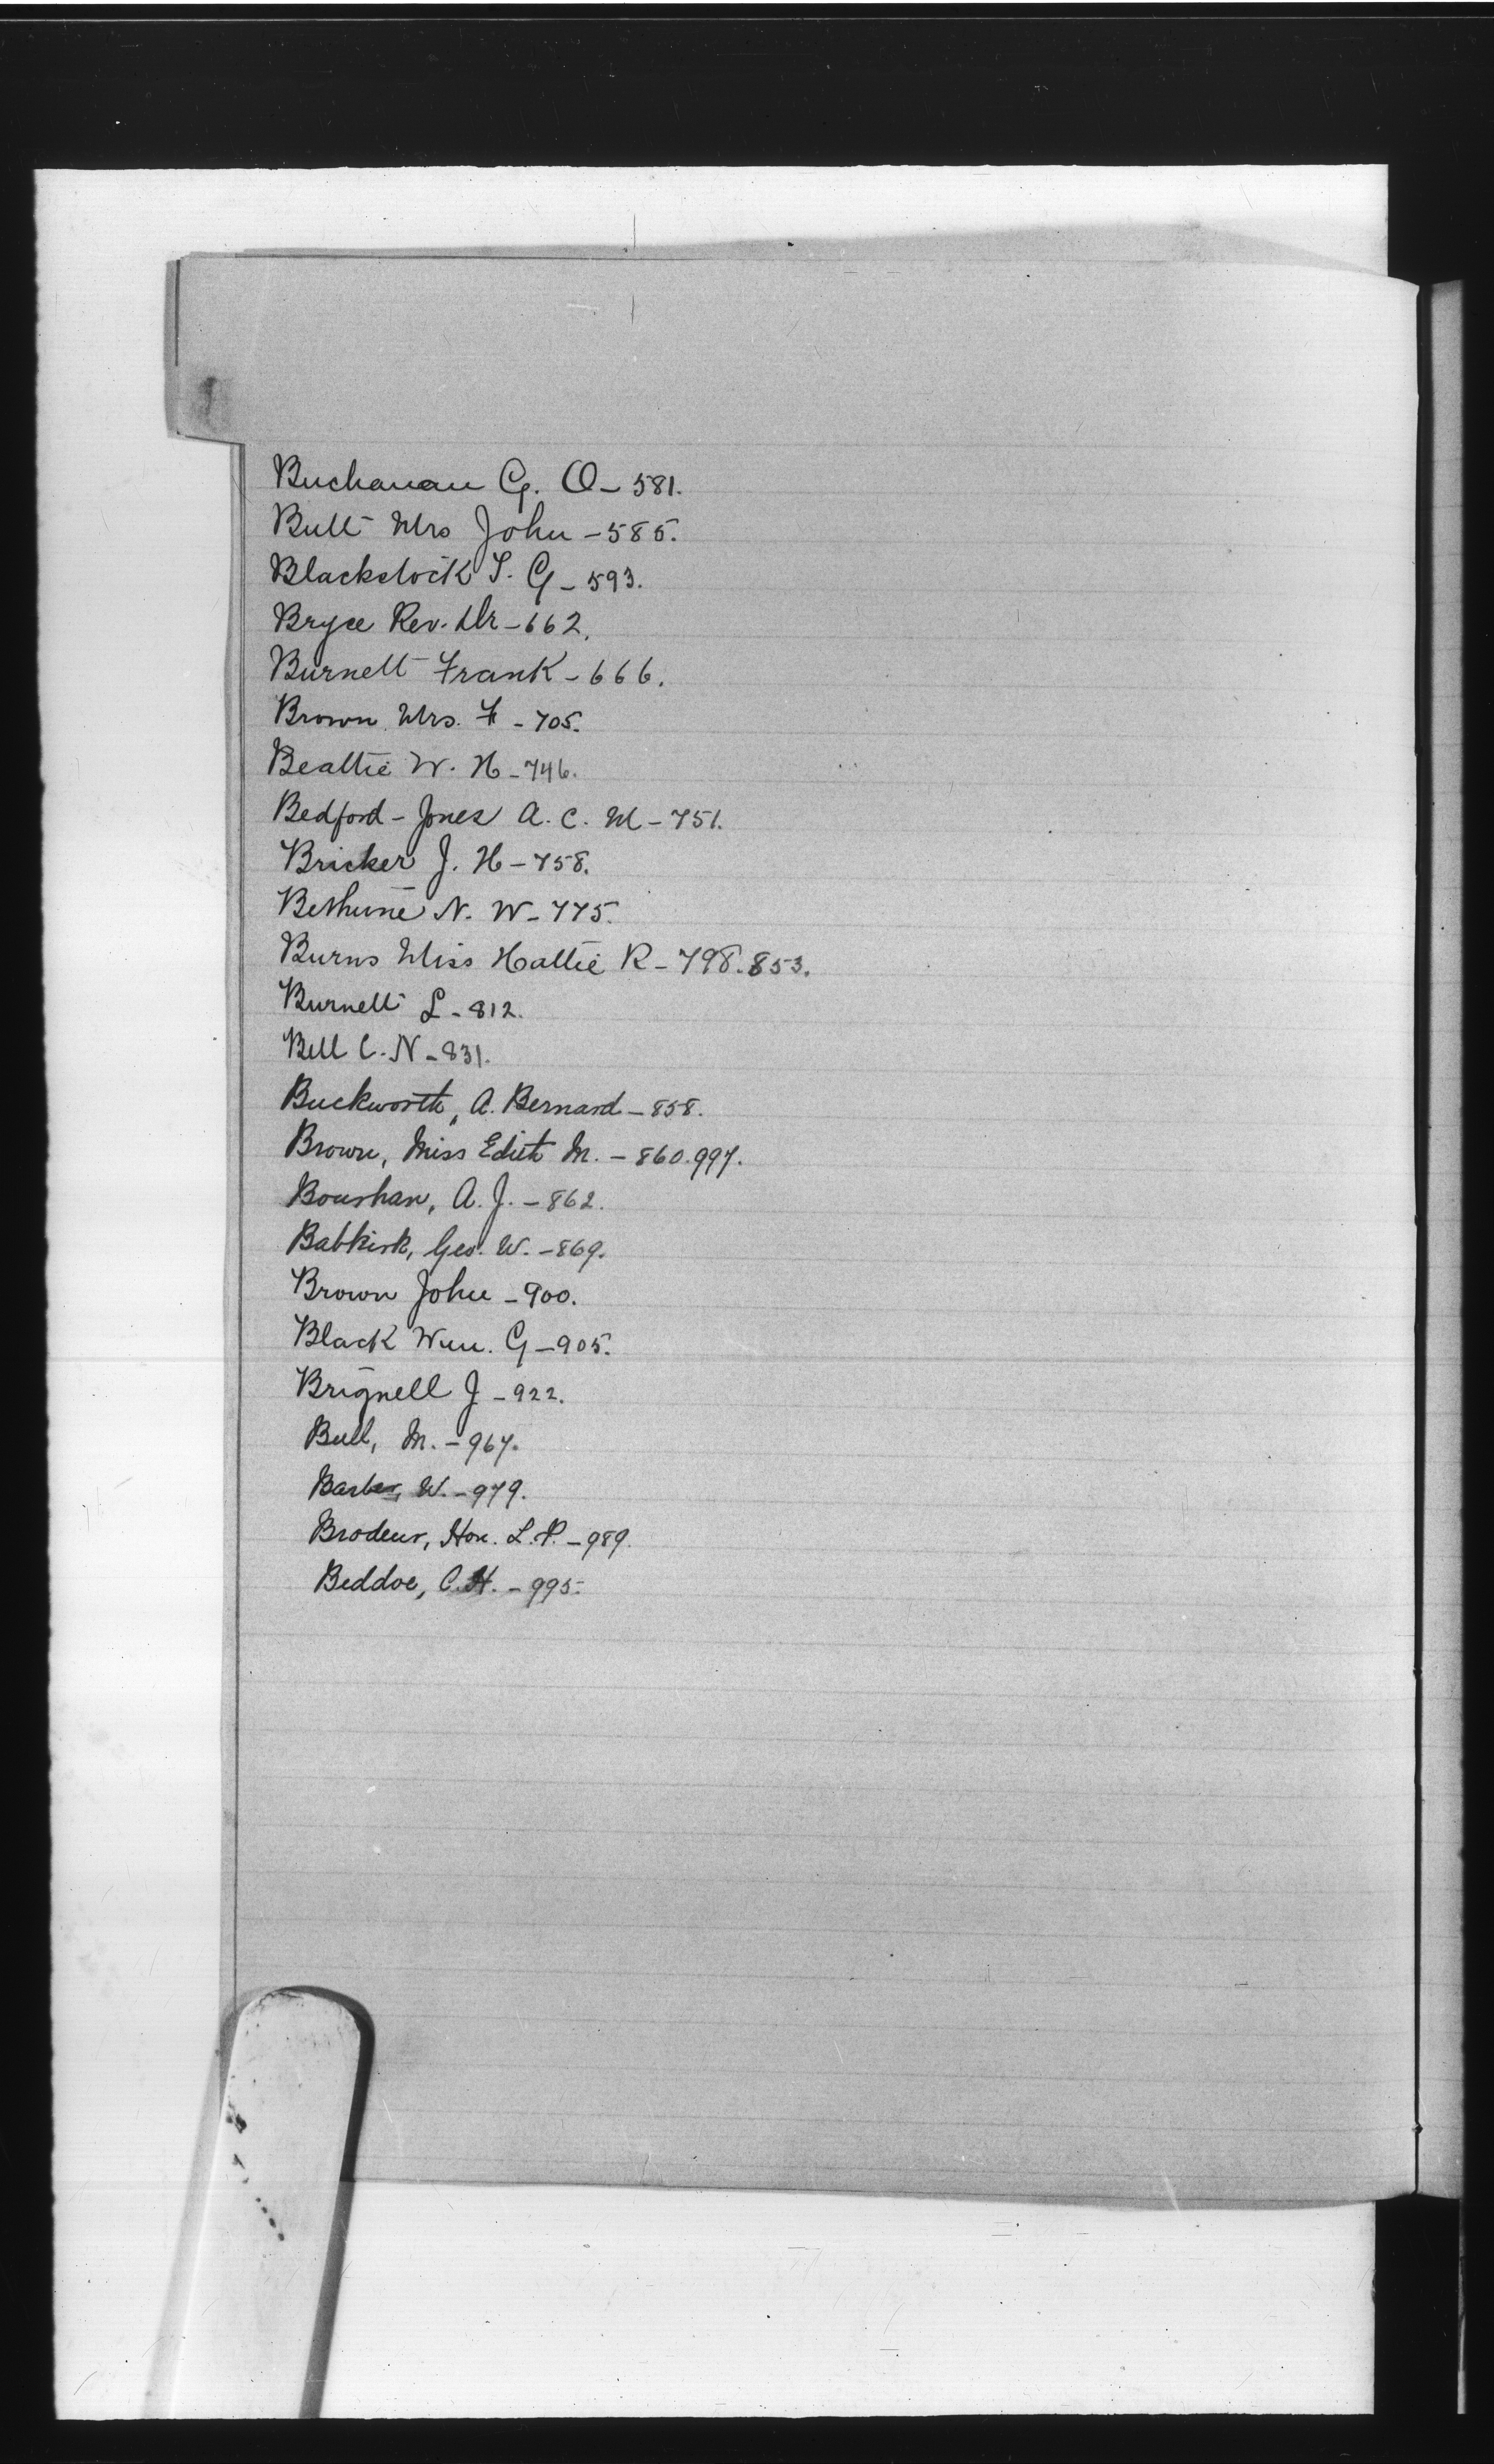 Buchanan G. O - 581.
Butt Mrs John - 585.
Blackstock T. G - 593.
Bryce Rev. Dr - 662.
Burnett Frank - 666.
Brown Mrs. F - 705.
Beattie W. H - 746.
Bedford - Jones A. C. M - 751.
Bricker J. H - 758.
Bethune N. W - 775.
Burns Miss Hattie R - 798. 853.
Burnett L - 812.
Bell C. N - 831.
Buckworth, A. Bernard - 858.
Brown, Miss Edith M. - 860. 997.
Bourhan, A. J. - 862.
Babkirk, Geo. W. - 869.
Brown John - 900.
Black Wm. G - 905.
Brignell J - 922.
Bull, M. - 967.
Barber, W. - 979.
Brodeur, Hon. L. P. - 989.
Beddoe, C. H. - 995.